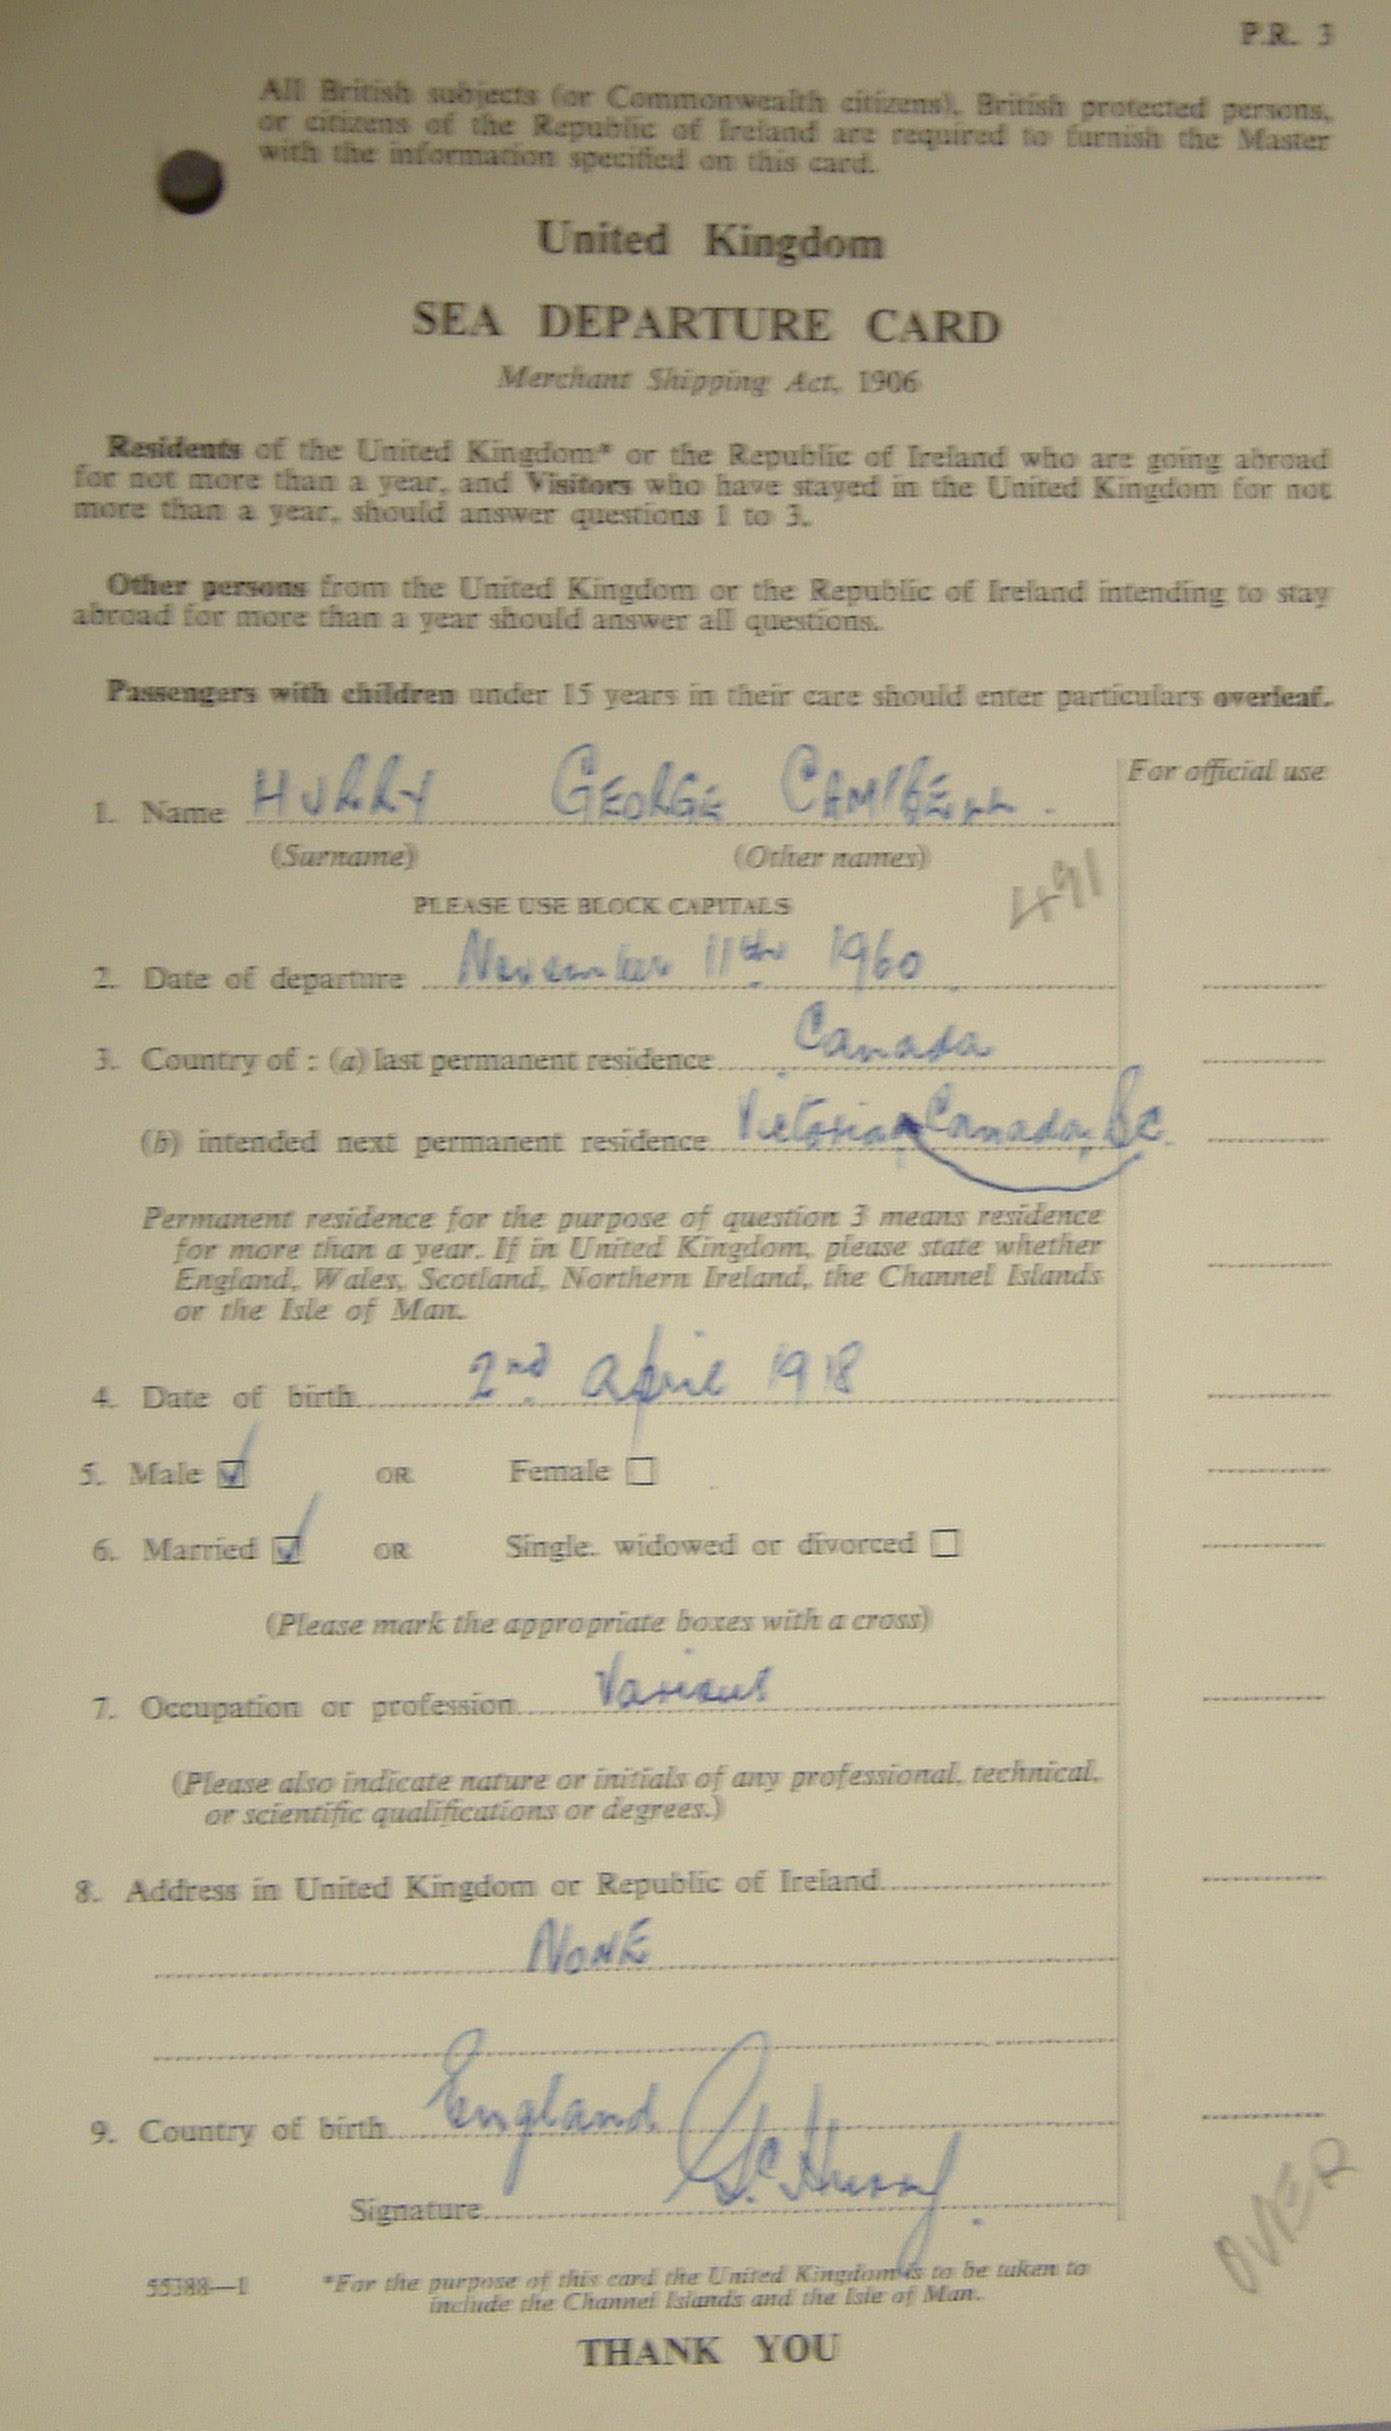 P.R. 3
All British subjects (or Commonwealth citizens), British protected persons,
or citizens of the Republic of Ireland are required to furnish the Master
with the information specified on this card.
United Kingdom
SEA DEPARTURE CARD
Merchant Shipping Act, 1906
Residents of the United Kingdom* or the Republic of Ireland who are going abroad
for not more than a year, and Visitors who have stayed in the United Kingdom for not
more than a year, should answer questions 1 to 3.
Other persons from the United Kingdom or the Republic of Ireland intending to stay
abroad for more than a year should answer all questions.
Passengers with children under 15 years in their care should enter particulars overleaf.
For official use
1. Name HURRY GEORGE CAMPBELL.
(Surname) (Other names)
491
PLEASE USE BLOCK CAPITALS
2. Date of departure November 11th 1960
3. Country of : (a) last permanent residence Canada
(b) intended next permanent residence Victoria Canada, BC.
Permanent residence for the purpose of question 3 means residence
for more than a year. If in United Kingdom, please state whether
England, Wales, Scotland, Northern Ireland, the Channel Islands
or the Isle of Man.
4. Date of birth 2nd April 1918
5. Male OR Female
6. Married OR Single, widowed or divorced
(Please mark the appropriate boxes with a cross)
7. Occupation or profession Various
(Please also indicate nature or initials of any professional, technical,
or scientific qualifications or degrees.)
8. Address in United Kingdom or Republic of Ireland
NONE
9. Country of birth England
Signature G.C. Hurry.
OVER
55388—1 *For the purpose of this card the United Kingdom is to be taken to
include the Channel Islands and the Isle of Man.
THANK YOU